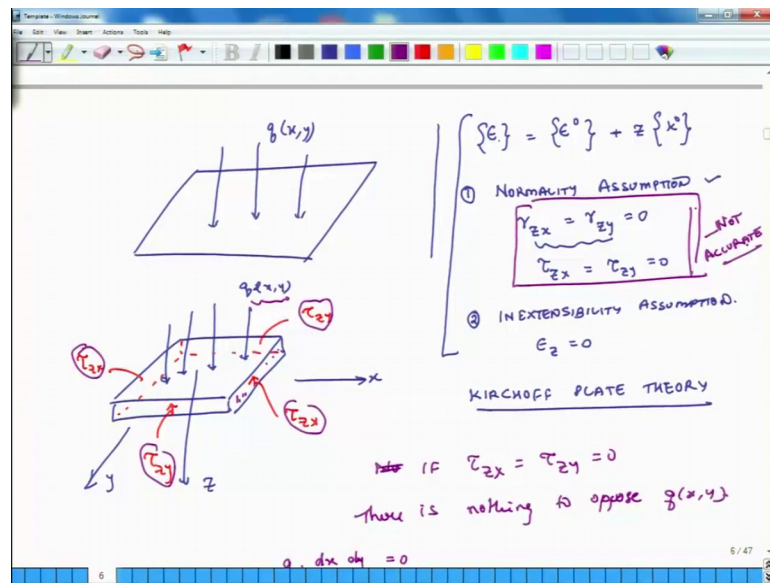 Template - Windows Journal
File Edit View Insert Actions Tools Help
B I
q(x,y)
{ϵ} = {ϵ°} + z {κ°}
① NORMALITY ASSUMPTION ✓
γzx = γzy = 0
τzx = τzy = 0
NOT
ACCURATE
② INEXTENSIBILITY ASSUMPTION.
ϵz = 0
KIRCHOFF PLATE THEORY
q(x,y)
τzy
τzx
x
τzx
τzy
y
z
IF τzx = τzy = 0
There is nothing to oppose q(x,y)
q. dx dy = 0
6 / 47
6